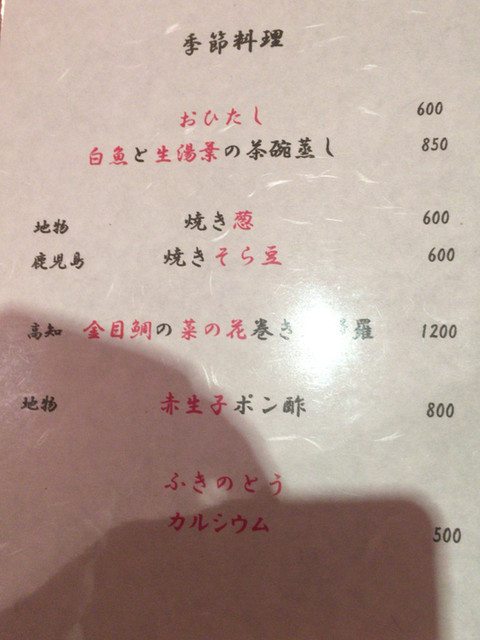 季節料理
おひたし 600
白魚と生湯葉の茶碗蒸し 850
地物 焼き葱 600
鹿児島 焼きそら豆 600
高知 金目鯛の菜の花巻き 羅 1200
地物 赤生子ポン酢 800
ふきのとう
カルシウム 500